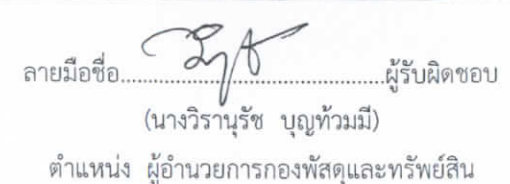 ลายมือชื่อ.......................................................ผู้รับผิดชอบ
(นางวิรานุรัช บุญท้วมมี)
ตำแหน่ง ผู้อำนวยการกองพัสดุและทรัพย์สิน